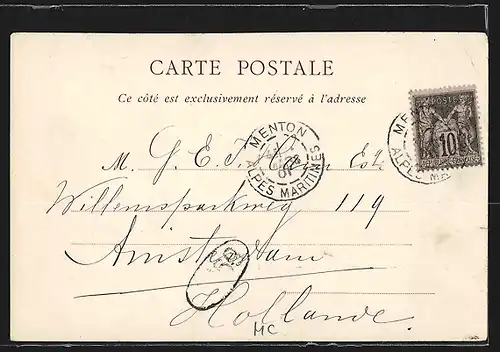 CARTE POSTALE
Ce côté est exclusivement réservé à l'adresse
MENTON
ALPES MARITIMES
01
POSTE
10
M. G. E. Esq.
Willemsparkweg 119
Amsterdam
Hollande
MC